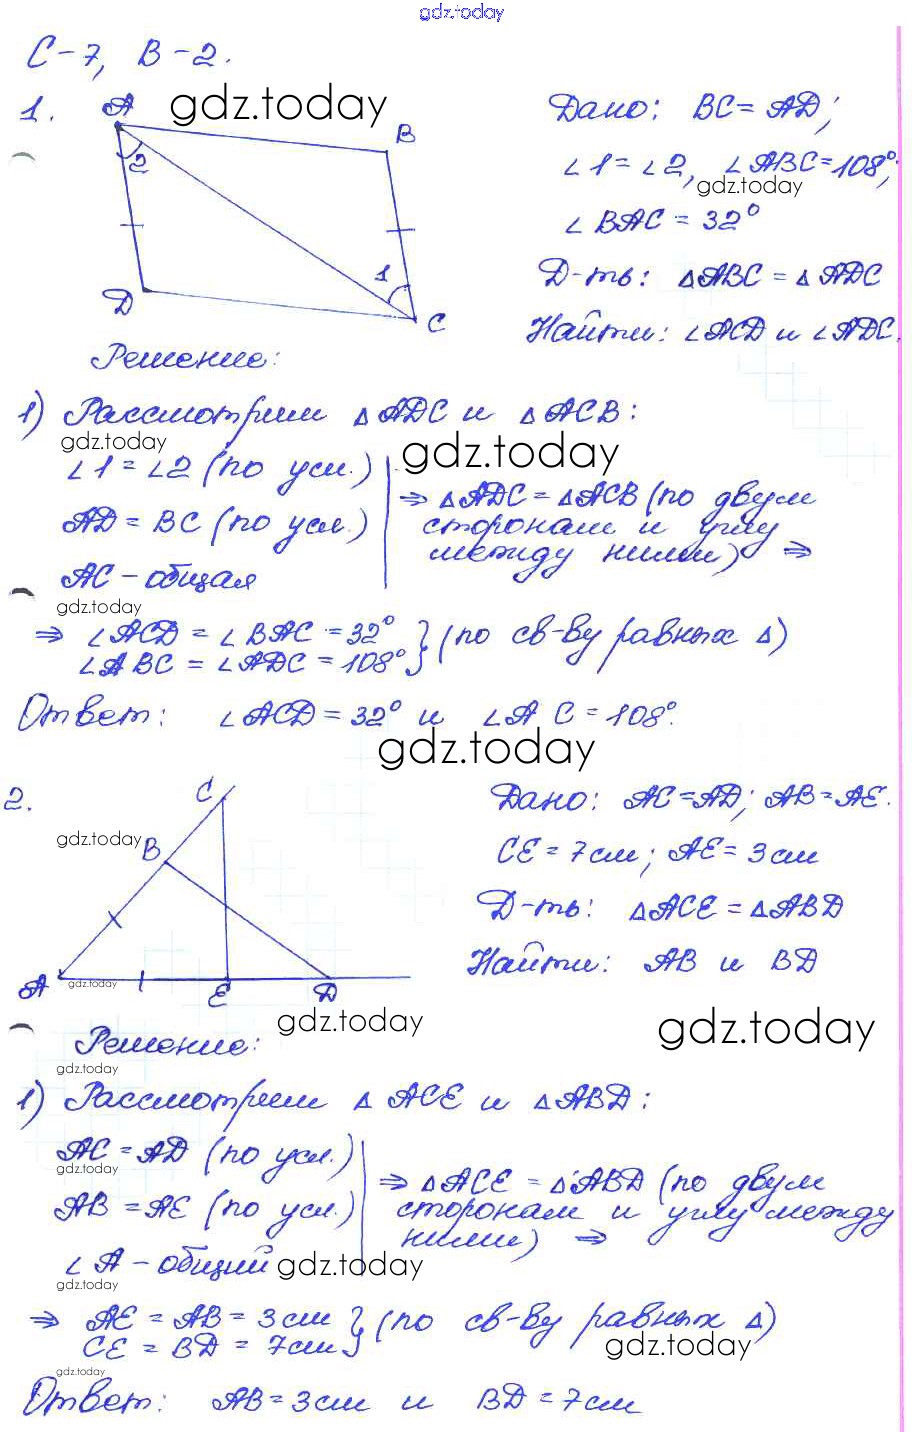 gdz.today
С-7, В-2.
1.
A
gdz.today
B
2
1
D
C
Дано: BC = AD;
∠1 = ∠2, ∠ABC = 108°;
gdz.today
∠BAC = 32°
Д-ть: △ABC = △ADC
Найти: ∠ACD и ∠ADC.
Решение:
1) Рассмотрим △ADC и △ACB:
gdz.today
gdz.today
∠1 = ∠2 (по усл.)
AD = BC (по усл.)
AC - общая
⇒ △ADC = △ACB (по двум
сторонам и углу
между ними) ⇒
gdz.today
⇒ ∠ACD = ∠BAC = 32°
∠ABC = ∠ADC = 108° } (по св-ву равных △)
Ответ: ∠ACD = 32° и ∠A C = 108°.
gdz.today
2.
C
gdz.today
B
A
gdz.today
E
D
gdz.today
Дано: AC = AD; AB = AE.
CE = 7 см; AE = 3 см
Д-ть: △ACE = △ABD
Найти: AB и BD
gdz.today
Решение:
gdz.today
1) Рассмотрим △ ACE и △ABD:
AC = AD (по усл.)
gdz.today
AB = AE (по усл.)
∠A - общий
gdz.today
gdz.today
⇒ △ACE = △ABD (по двум
сторонам и углу между
ними) ⇒
⇒ AE = AB = 3 см
CE = BD = 7 см } (по св-ву равных △)
gdz.today
gdz.today
Ответ: AB = 3 см и BD = 7 см